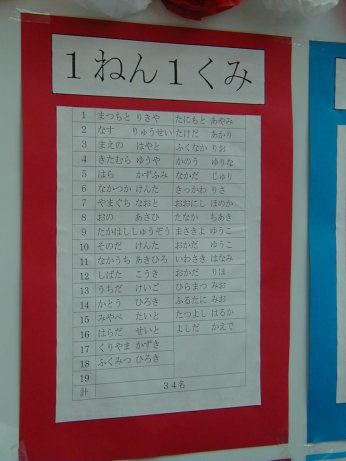 1ねん1くみ
1 まつもと りきや たにもと あやみ
2 なす りゅうせい たけだ あかり
3 まえの はやと ふくなか りお
4 きたむら ゆうや かのう ゆりな
5 はら かずふみ なかだ じゅり
6 なかつか けんた きっかわ りさ
7 やまぐち なおと おおにし ほのか
8 おの あさひ たなか ちあき
9 たかはし しゅうぞう まさきよ ゆうこ
10 そのだ けんた おかだ ゆうこ
11 なかうち あきひろ いわさき はなみ
12 しばた こうき おかだ りほ
13 うちだ けいご ひらまつ みお
14 かとう ひろき ふるたに みお
15 みやべ たいと たつよし はるか
16 はらだ せいと よしだ かえで
17 くりやま かずき
18 ふくみつ ひろき
19
計 34名